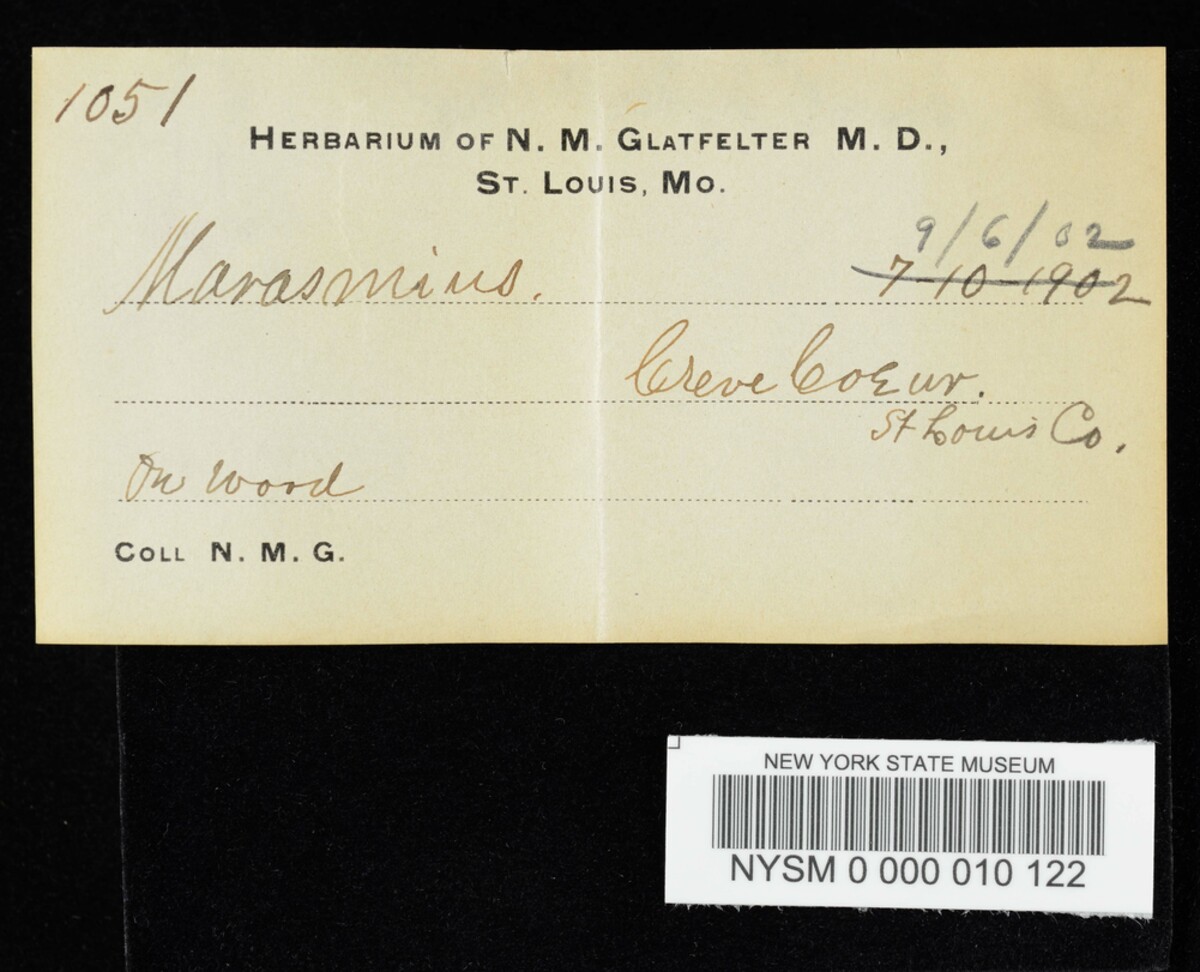 1051
HERBARIUM OF N. M. GLATFELTER M. D.,
ST. LOUIS, MO.
9/6/02
Marasmius. 7-10-1902
Creve Coeur.
St Louis Co.
On wood
COLL N. M. G.
NEW YORK STATE MUSEUM
NYSM 0 000 010 122